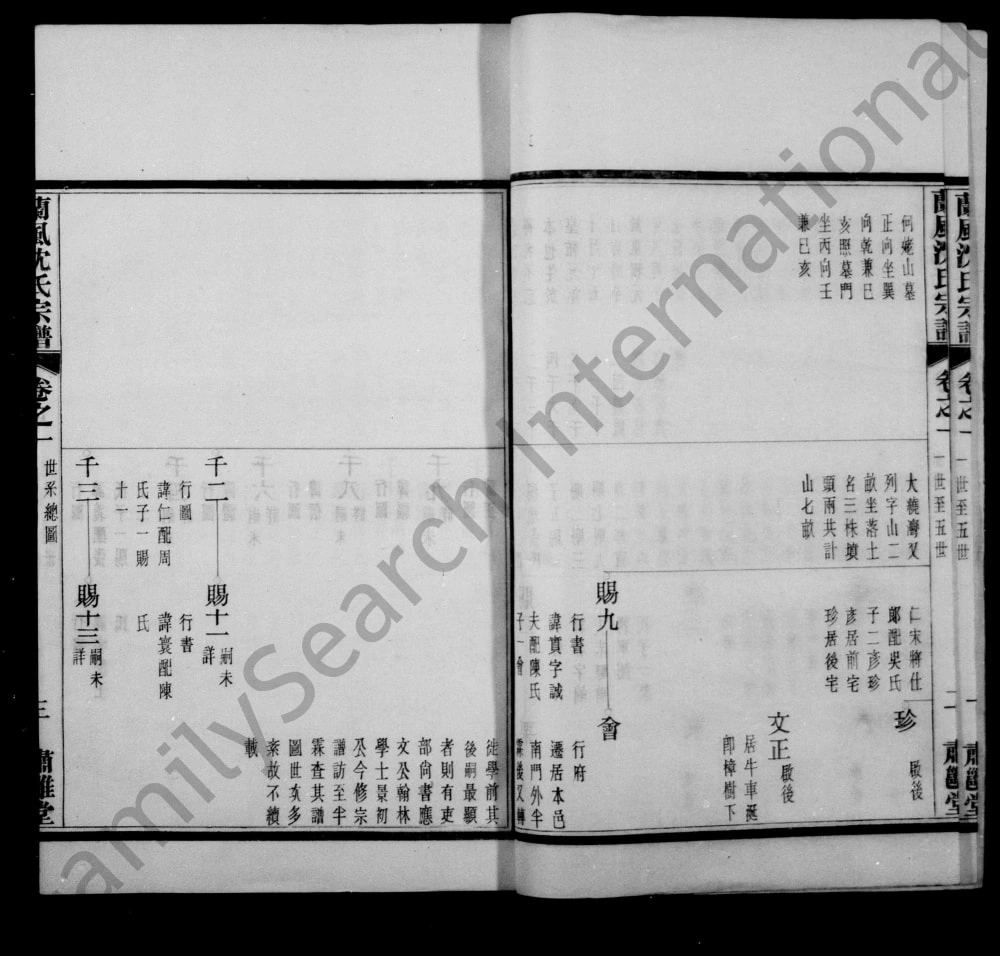 蘭風沈氏宗譜
卷之一
一世至五世
一
肅雝堂
蘭風沈氏宗譜
卷之一
一世至五世
二
肅雝堂
何姥山墓
正向坐巽
向乾兼巳
亥照墓門
坐丙向壬
兼巳亥
大繞灣又
列字山二
畝坐落土
名三株墳
頭兩共計
山七畝
仁宋將仕
郎配吳氏
子二彥珍
彥居前宅
珍居後宅
珍
啟後
文正
啟後
居牛車漩
郎樟樹下
賜九
行書
諱實字誠
夫配陳氏
子一會
會
行府
遷居本邑
南門外半
霖後又轉
徙學前其
後嗣最顯
者則有吏
部尚書應
文公翰林
學士景初
公今修宗
譜訪至半
霖查其譜
圖世次多
紊故不續
載
千二
行圖
諱仁配周
氏子一賜
十一
賜十一
嗣未
詳
行書
諱寰配陳
氏
千三
賜十三
嗣未
詳
蘭風沈氏宗譜
卷之一
世系總圖
三
肅雝堂
FamilySearch International